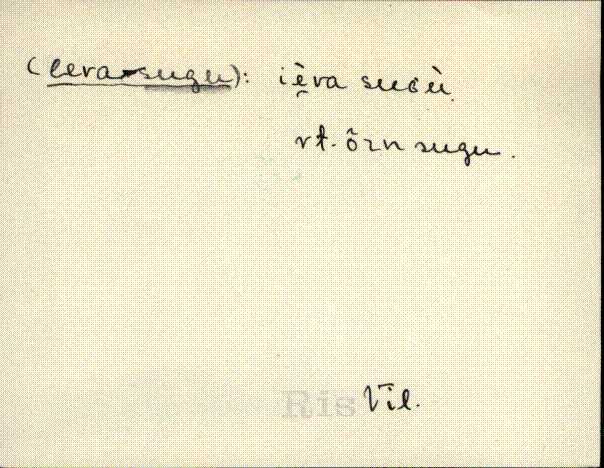 (leva-sugu): iė̮va suɢu̇.
vt. õrn sugu.
Ris Vil.